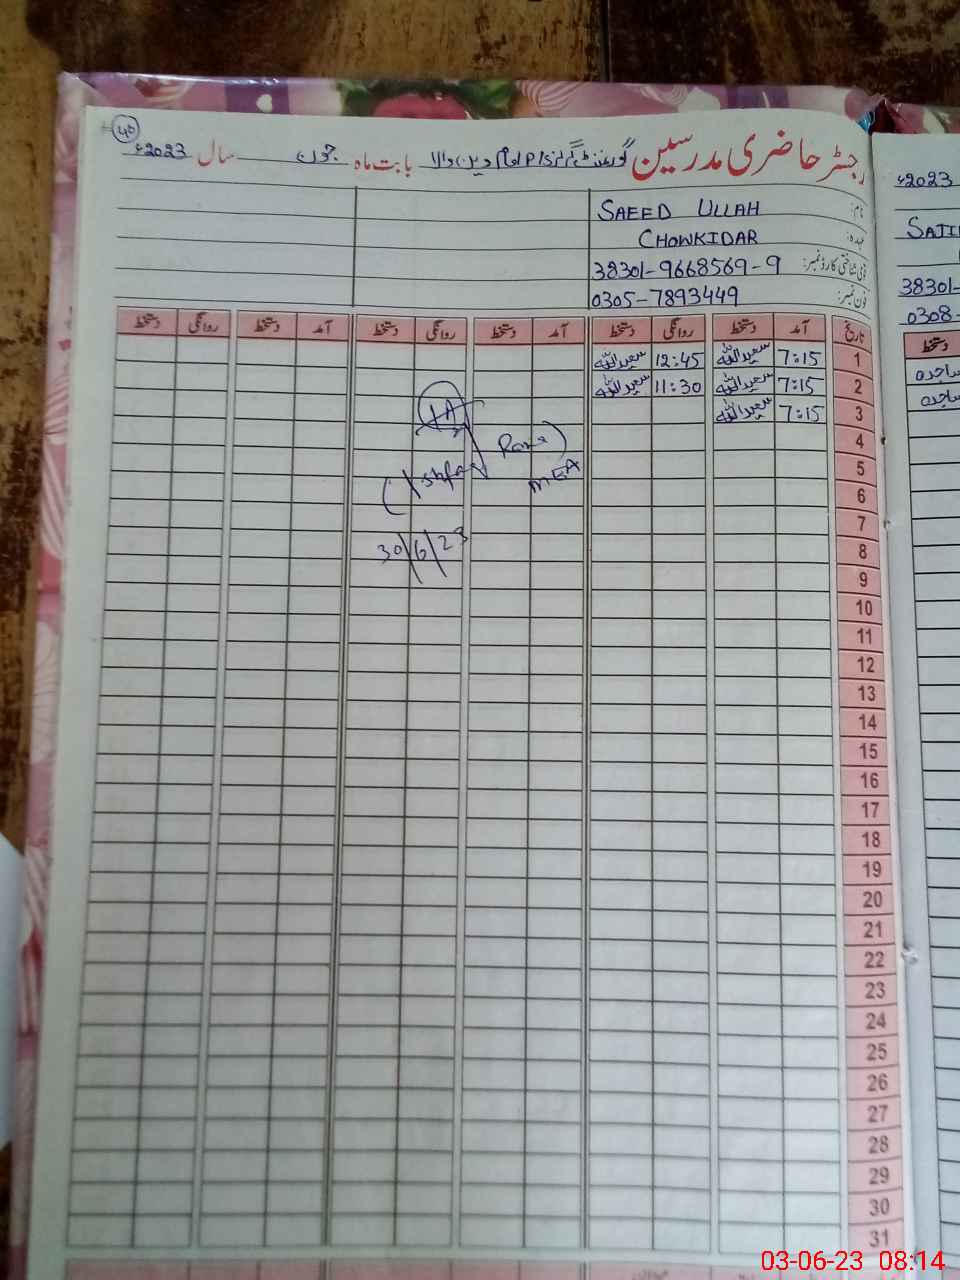 40
رجسٹر حاضری مدرسین گورنمنٹ گرلز P/S امام دین والا بابت ماہ جون سال 2023ء
نام: SAEED ULLAH
عہدہ: CHOWKIDAR
قومی شناختی کارڈ نمبر: 38301-9668569-9
فون نمبر: 0305-7893449
تاریخ آمد دستخط روانگی دستخط آمد دستخط روانگی دستخط آمد دستخط روانگی دستخط
1 7:15 سعیداللہ 12:45 سعیداللہ
2 7:15 سعیداللہ 11:30 سعیداللہ
3 7:15 سعیداللہ
4
5
6
7
8
9
10
11
12
13
14
15
16
17
18
19
20
21
22
23
24
25
26
27
28
29
30
31
Rana)
MEA
30/6/23
2023ء
38301-
0308-
دستخط
ساجدہ
ساجدہ
03-06-23 08:14